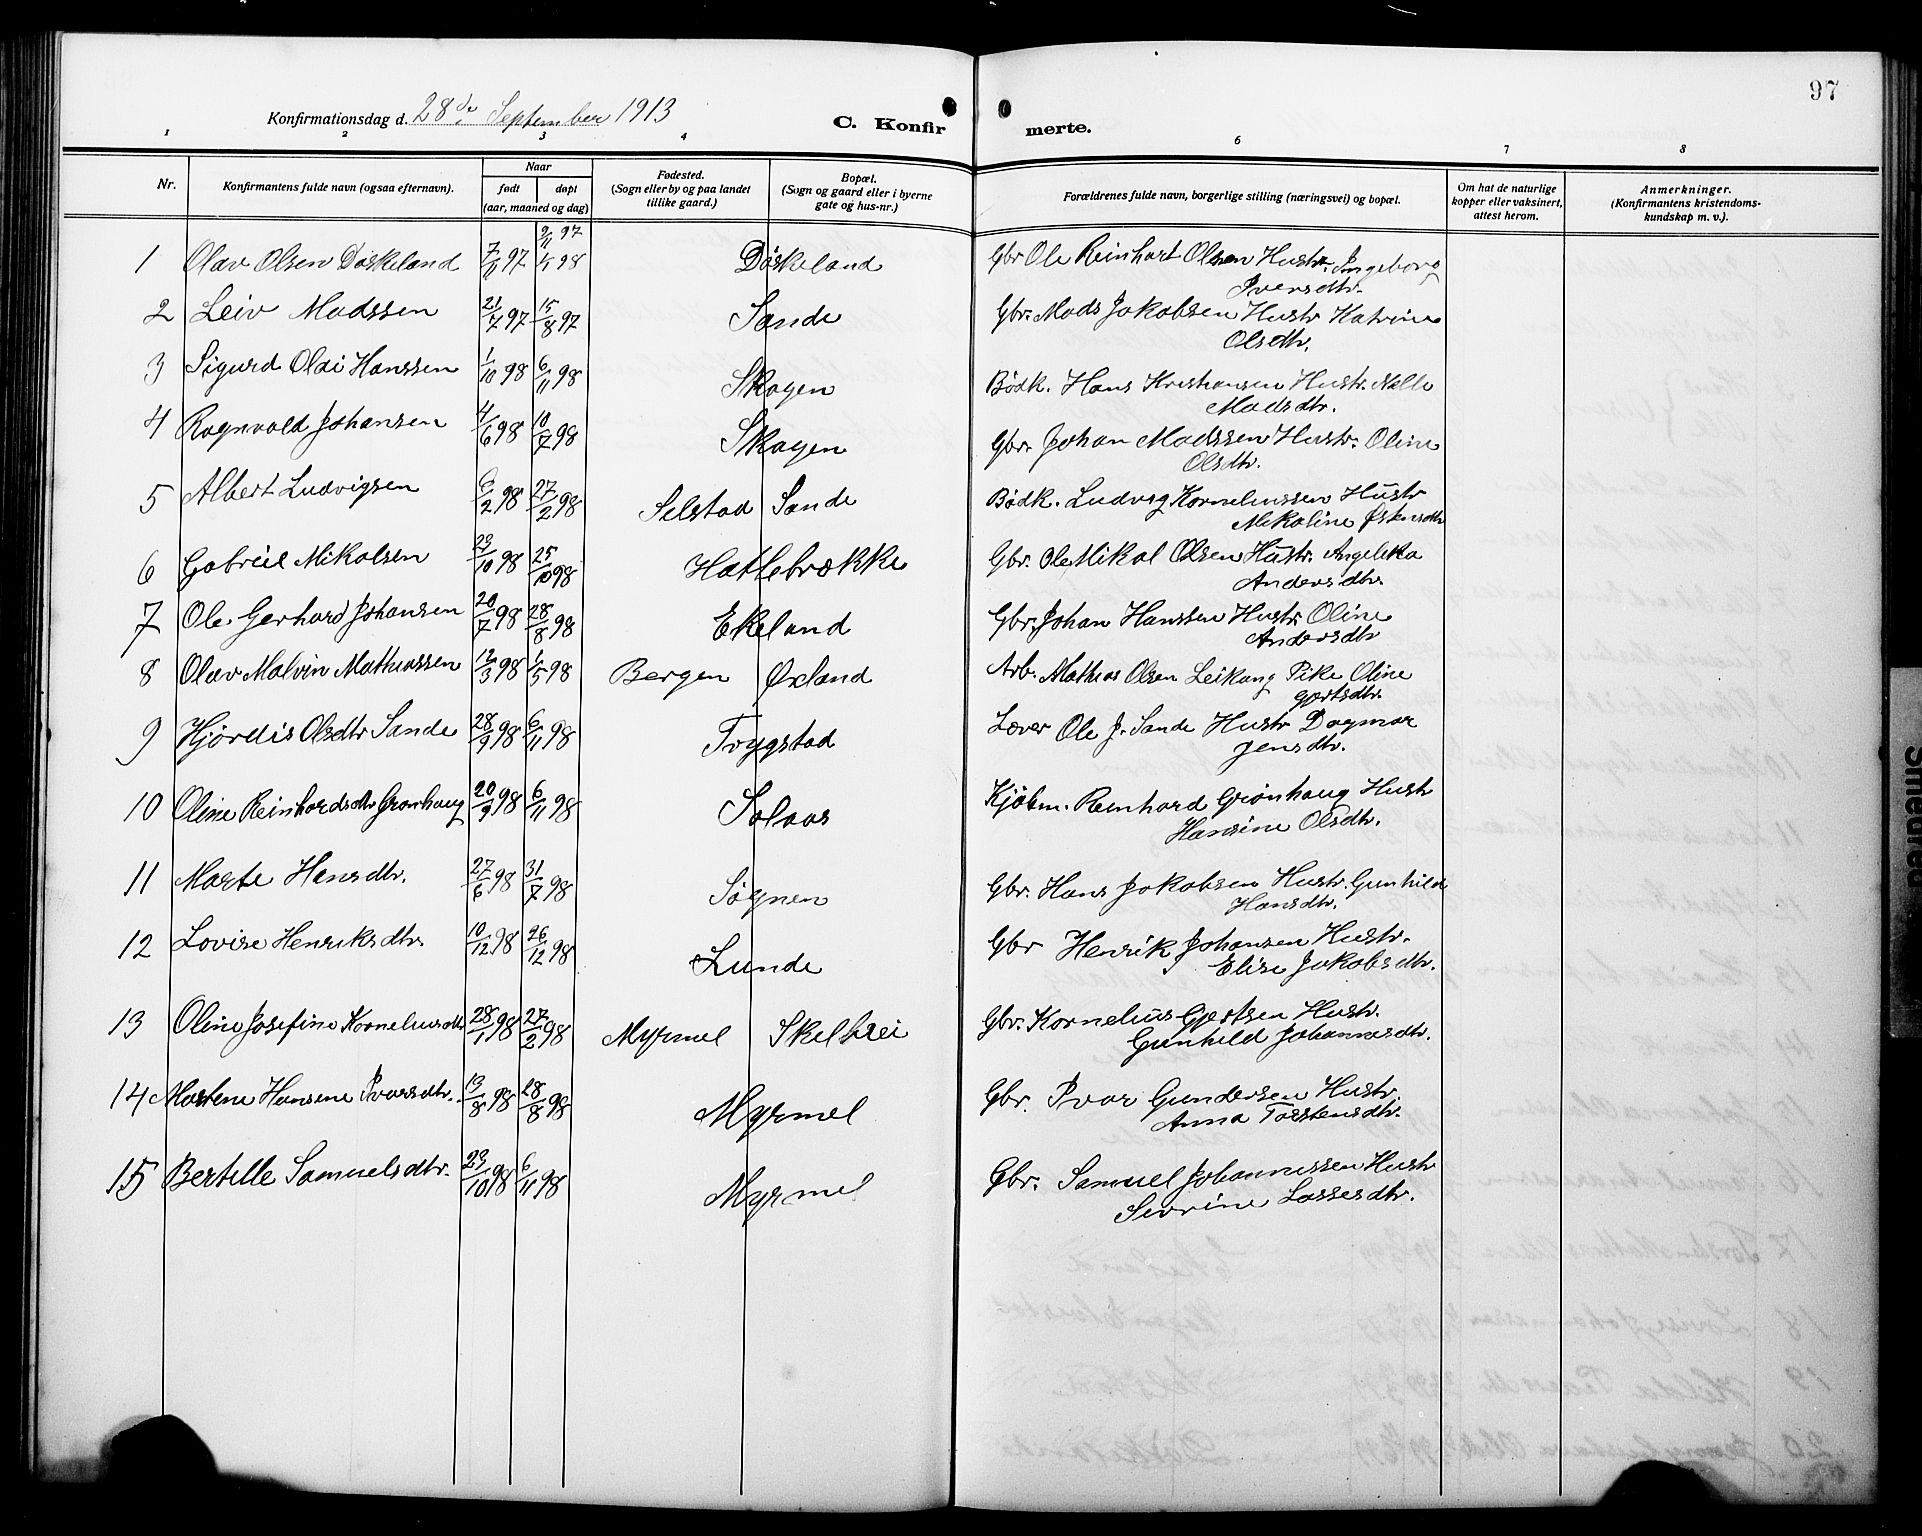 97
Konfirmationsdag d. 28de September 1913
C. Konfir merte.
1 2 3 4 6 7 8
Nr. Konfirmantens fulde navn (ogsaa efternavn). Naar født døpt (aar, maaned og dag) Fødested. (Sogn eller by og paa landet tillike gaard.) Bopæl. (Sogn og gaard eller i byerne gate og hus-nr.) Forældrenes fulde navn, borgerlige stilling (næringsvei) og bopæl. Om hat de naturlige kopper eller vaksinert, attest herom. Anmerkninger. (Konfirmantens kristendoms-kundskap m. v.).
1 Olav Olsen Døskeland 97 9/11 97 98 Døskeland Gbr Ole Reinhart Olsen Hustr. Ingeborg
Iversdtr.
2 Leiv Madssen 21/7 97 15/8 97 Sande Gbr. Mads Jakobsen Hustr Katrine
Olsdtr.
3 Sigurd Olai Hanssen 1/10 98 6/11 98 Skogen Bødk. Hans Kristiansen Hustr.
Madsdtr.
4 Ragnvald Johansen 4/6 98 10/7 98 Skogen Gbr. Johan Madssen Hustr. Oline
Olsdtr.
5 Albert Ludvigsen 6/2 98 27/2 98 Selstad Sande Bødk. Ludvig Korneliussen Hustr
Nikoline Østensdtr
6 Gabriel Mikalsen 23/10 98 25/10 98 Hatlebrække Gbr. Ole Mikal Olsen Hustr. Angelika
Andersdtr
7 Ole Gerhard Johansen 20/7 98 28/8 98 Ekeland Gbr. Johan Hanssen Hustr Oline
Andersdtr
8 Olav Malvin Mathiassen 12/3 98 1/5 98 Bergen Øxland Arb. Mathias Olsen Leikang Pike Oline
Gjertsdtr.
9 Hjørdis Olsdtr Sande 28/9 98 6/11 98 Trygstad Lærer Ole J. Sande Hustr Dagmar
Jensdtr.
10 Oline Reinhardsdtr Grønhaug 20/9 98 6/11 98 Solaas Kjøbm. Reinhard Grønhaug Hustr
Hansine Olsdtr.
11 Marte Hansdtr. 27/6 98 31/7 98 Søgnen Gbr. Hans Jakobsen Hustr. Gunhild
Hansdtr.
12 Lovise Henriksdtr 10/12 98 26/12 98 Lunde Gbr Henrik Johansen Hustr.
Elise Jakobsdtr.
13 Oline Josefine Korneliusdtr 28/1 98 27/2 98 Myrmel Skelbrei Gbr. Kornelius Gjertsen Hustr.
Gunhild Johannesdtr.
14 Martene Hansene Ivarsdtr. 13/8 98 28/8 98 Myrmel Gbr. Ivar Gundersen Hustr.
Anna Torstensdtr.
15 Bertille Samuelsdtr. 23/10 98 6/11 98 Myrmel Gbr. Samuel Johannessen Hustr
Sevrine Lassesdtr.